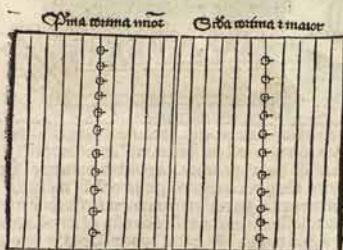 Pma cortina miõr Scďa cortina ⁊ maior